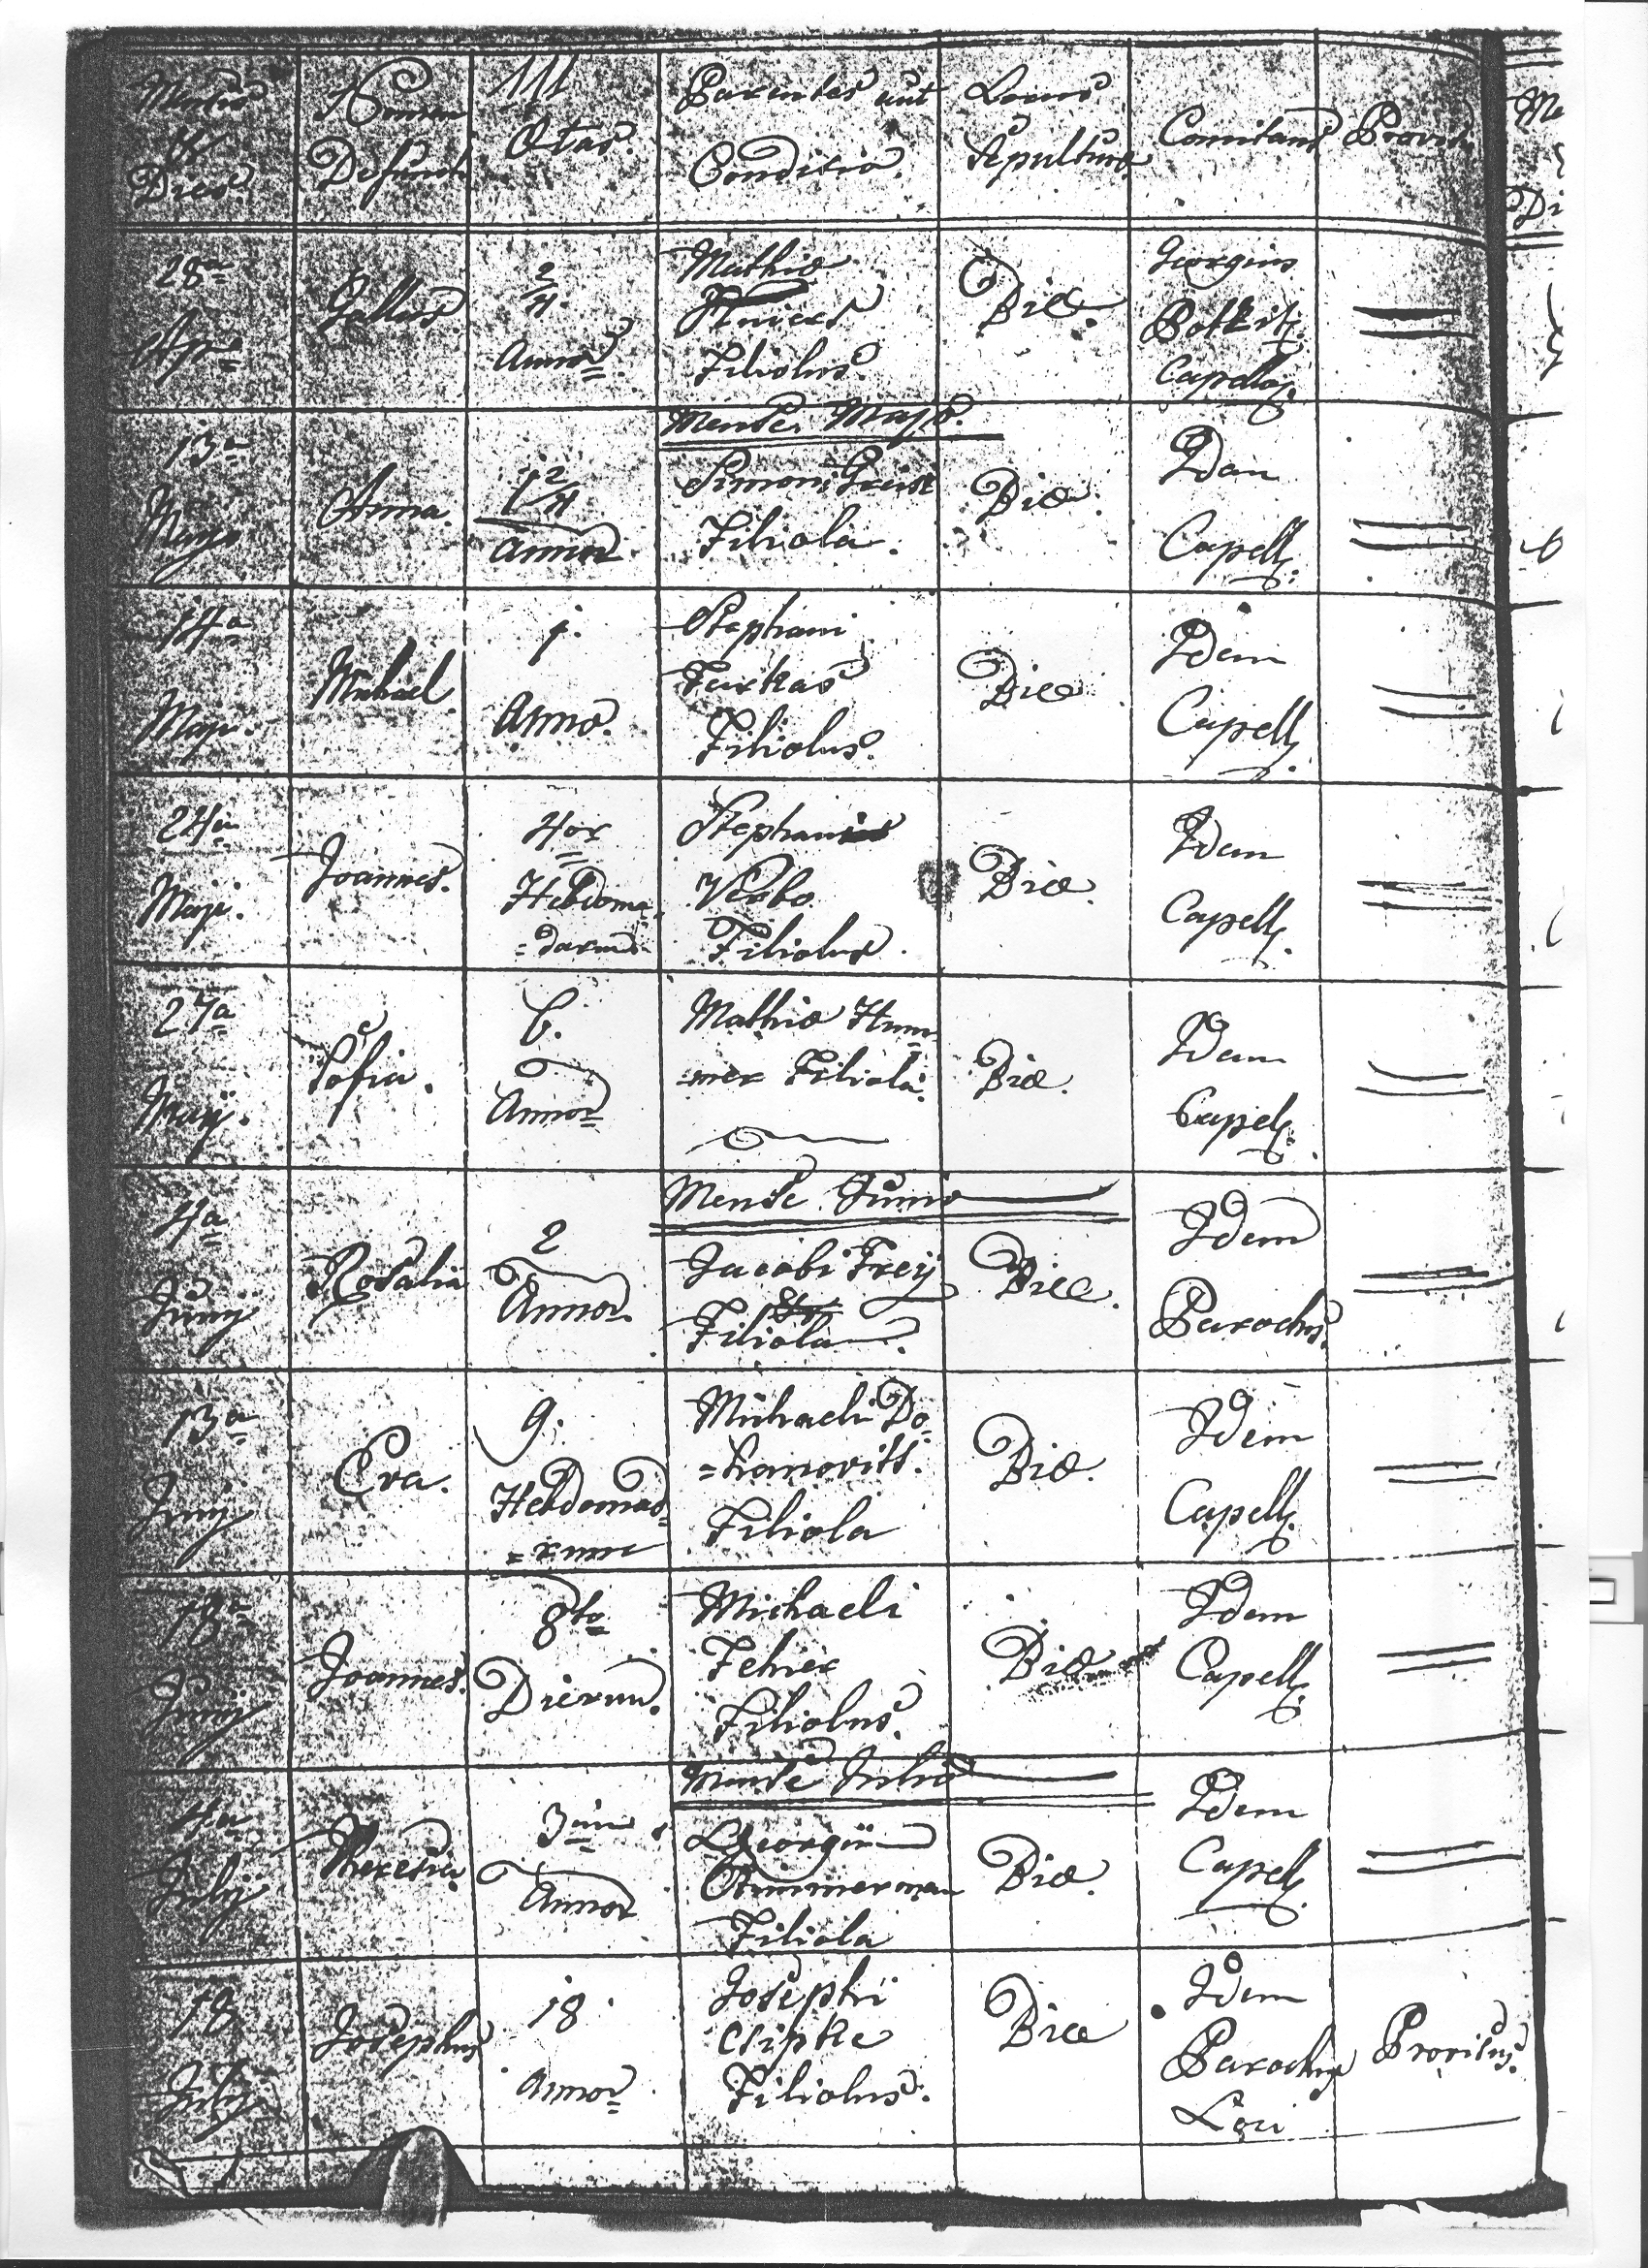 Mensis Nomen Ætas. Parentes aut Locus Comitans Provis.
& Defuncti Conditio. Sepulturæ.
Dies.
28a
Apr
Gallus
2/4.
Annor.
Mathiæ
Filiolus.
Biæ.
Georgius
Capellan.
Mense Majo.
13a
Maji
Anna.
1 2/4
Annor.
Simoni
Filiola.
Biæ.
Idem
Capell.
14a
Maji.
Michael.
1.
Anno.
Stephani
Farkas
Filiolus.
Biæ
Idem
Capell.
24a
Maji.
Joannes.
4or
Hebdoma
=darum.
Stephani
Verbo
Filiolus.
Biæ.
Idem
Capell.
27a
Maij.
Sofia.
6.
Annor
Mathiæ Hum
=mer Filiola.
Biæ.
Idem
Capell.
Mense Junio
4a
Junij
Rosalia
2
Annor.
Jacobi Freij
Filiola.
Biæ.
Idem
Parochus.
13a
Junij
Eva.
9.
Hebdomad
=rum
Michaeli Do
=hanovits.
Filiola
Biæ.
Idem
Capell.
18a
Junij
Joannes.
8to
Dierum.
Michaeli
Feher
Filiolus.
Biæ
Idem
Capell.
Mense Julio
4a
Julij
Theresia
3ium
Annor
Georgii
Cimmerman
Filiola
Biæ.
Idem
Capell.
18
Julij
Josephus
18
Annor.
Josephi
Csipke
Filiolus.
Biæ
Idem
Parochus
Loci
Provisus.